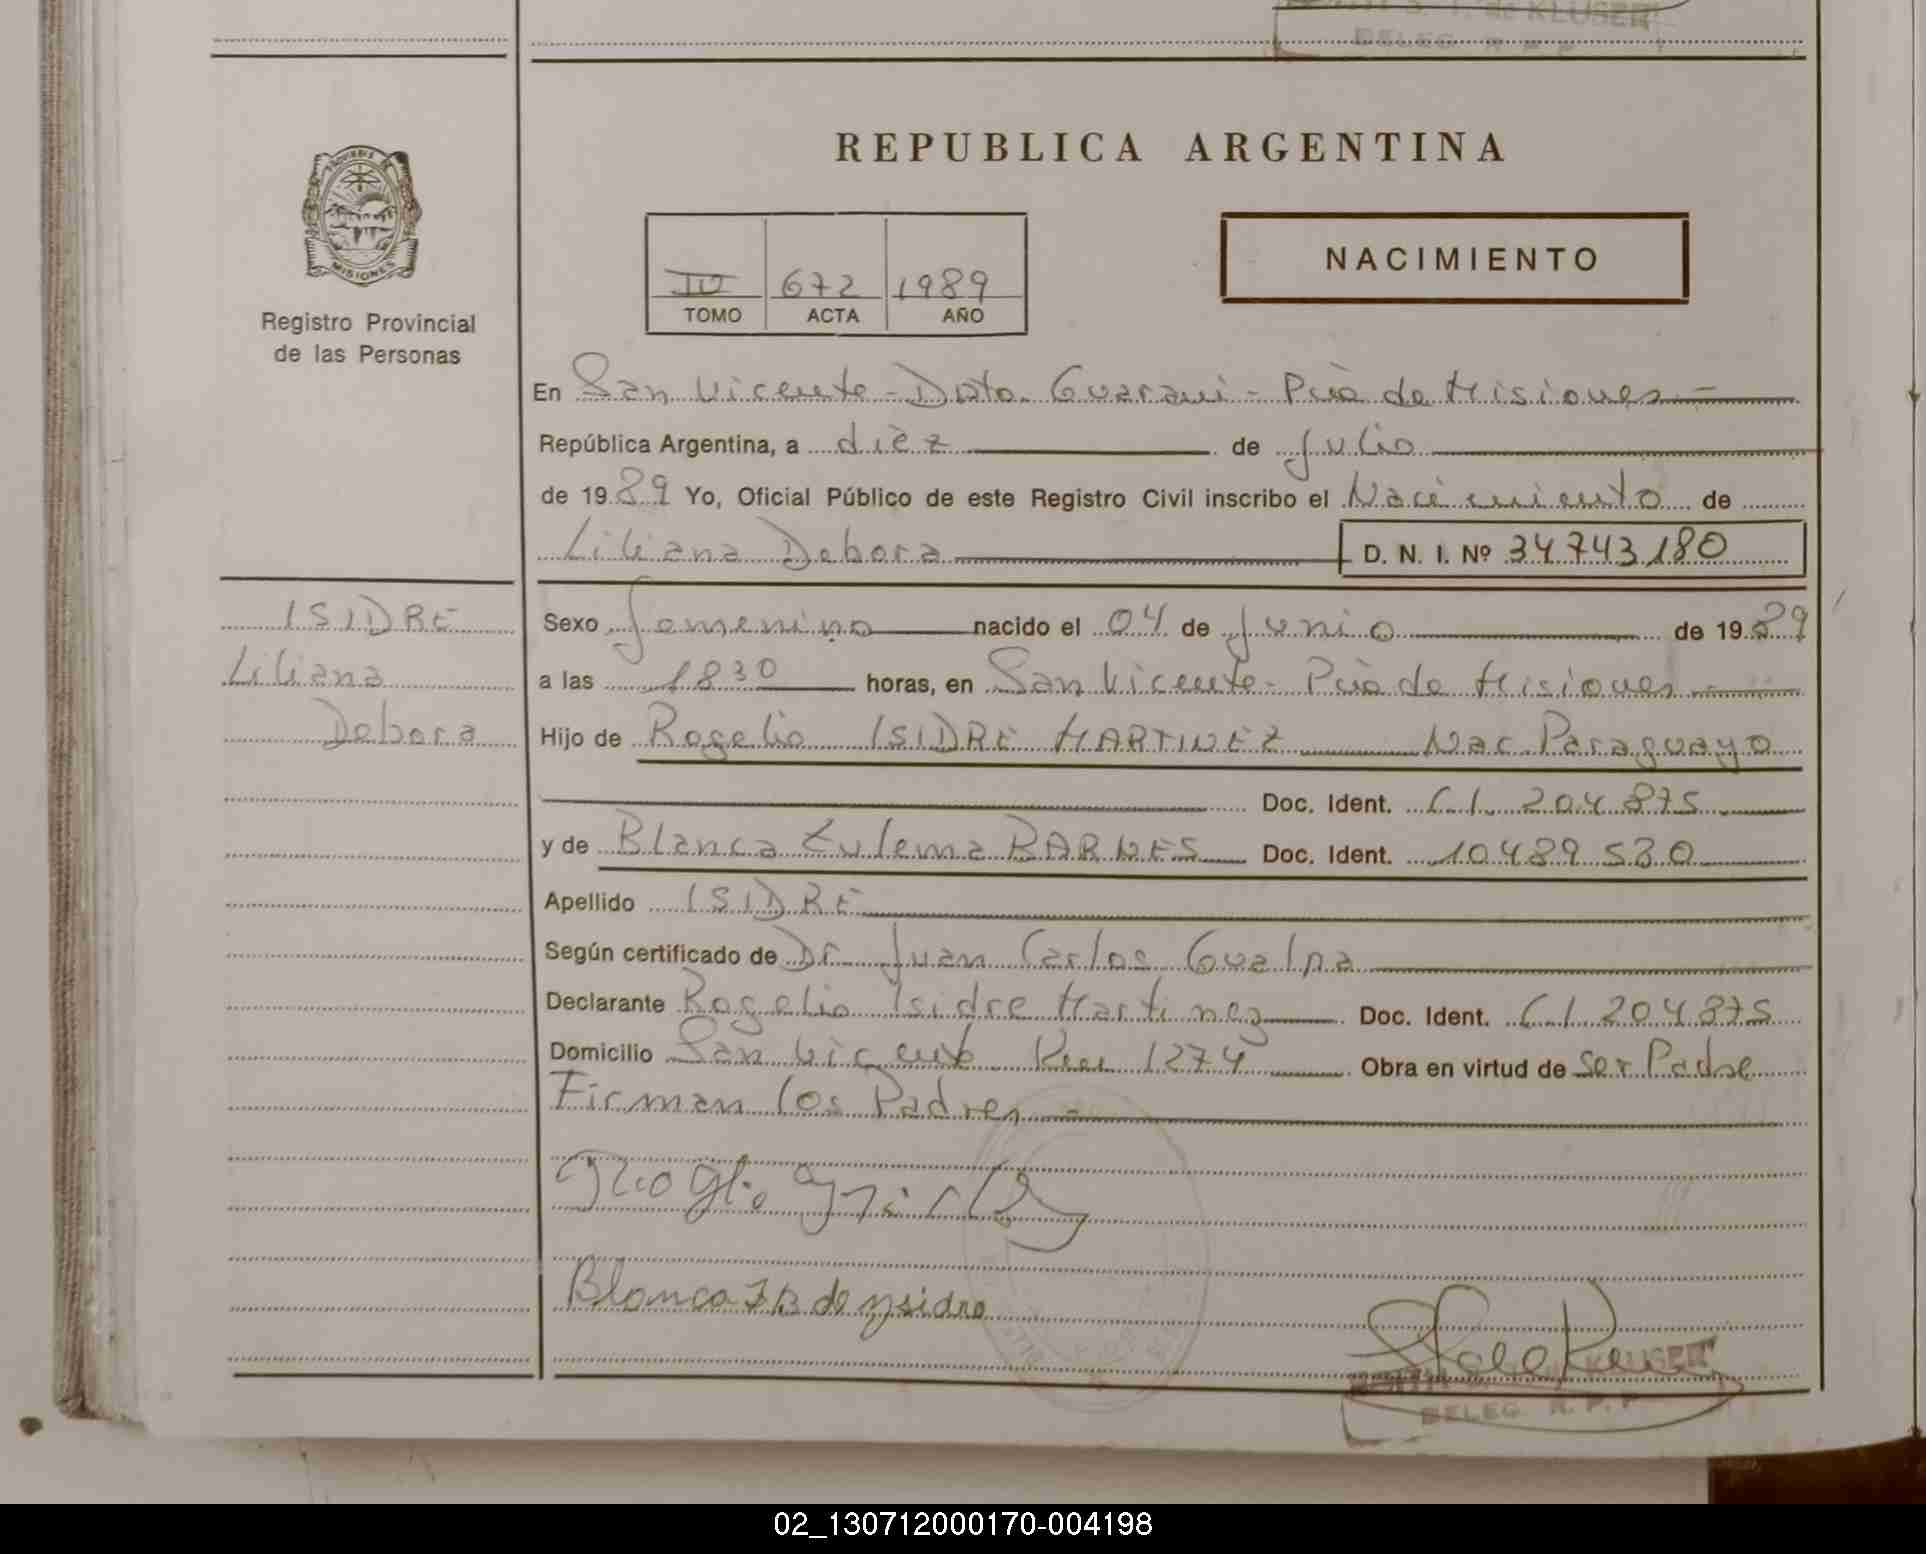 S. T. de KLUSER
DELEG. R. P. P.
REPUBLICA ARGENTINA
PROVINCIA DE
MISIONES
NACIMIENTO
IV 672 1989
TOMO ACTA AÑO
Registro Provincial
de las Personas
En San Vicente - Dpto. Guarani - Pcia de Misiones -
República Argentina, a diez de Julio
de 1989 Yo, Oficial Público de este Registro Civil inscribo el Nacimiento de
Liliana Debora D. N. I. Nº 34.743.180
ISIDRE
Liliana
Debora
Sexo femenino nacido el 04 de Junio de 1989
a las 1830 horas, en San Vicente - Pcia de Misiones -
Hijo de Rogelio ISIDRE MARTINEZ Nac. Paraguayo
Doc. Ident. C.I. 204.875
y de Blanca Zulema BARNES Doc. Ident. 10.489.530
Apellido ISIDRE
Según certificado de Dr. Juan Carlos Gualpa
Declarante Rogelio Isidre Martinez Doc. Ident. C.I. 204.875
Domicilio San Vicente Km 1274 Obra en virtud de ser Padre
Firman los Padres -
Blanca Z B de Ysidro
KLUSER
DELEG. R. P. P.
02_130712000170-004198